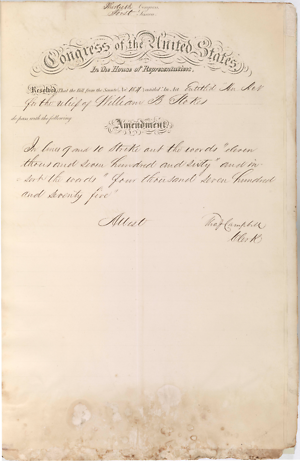 Thirtieth Congress
First Session
Congress of the United States,
In the House of Representatives,
Resolved, That the Bill from the Senate, No. 164 entitled "An Act Entitled An Act
for the relief of William B Stokes
do pass with the following
Amendment,
In line 9 and 10 Strike out the words "eleven
thousand seven hundred and sixty" and in
sert the words "four thousand seven hundred
and seventy five"
Attest
Tho J Campbell
Clerk